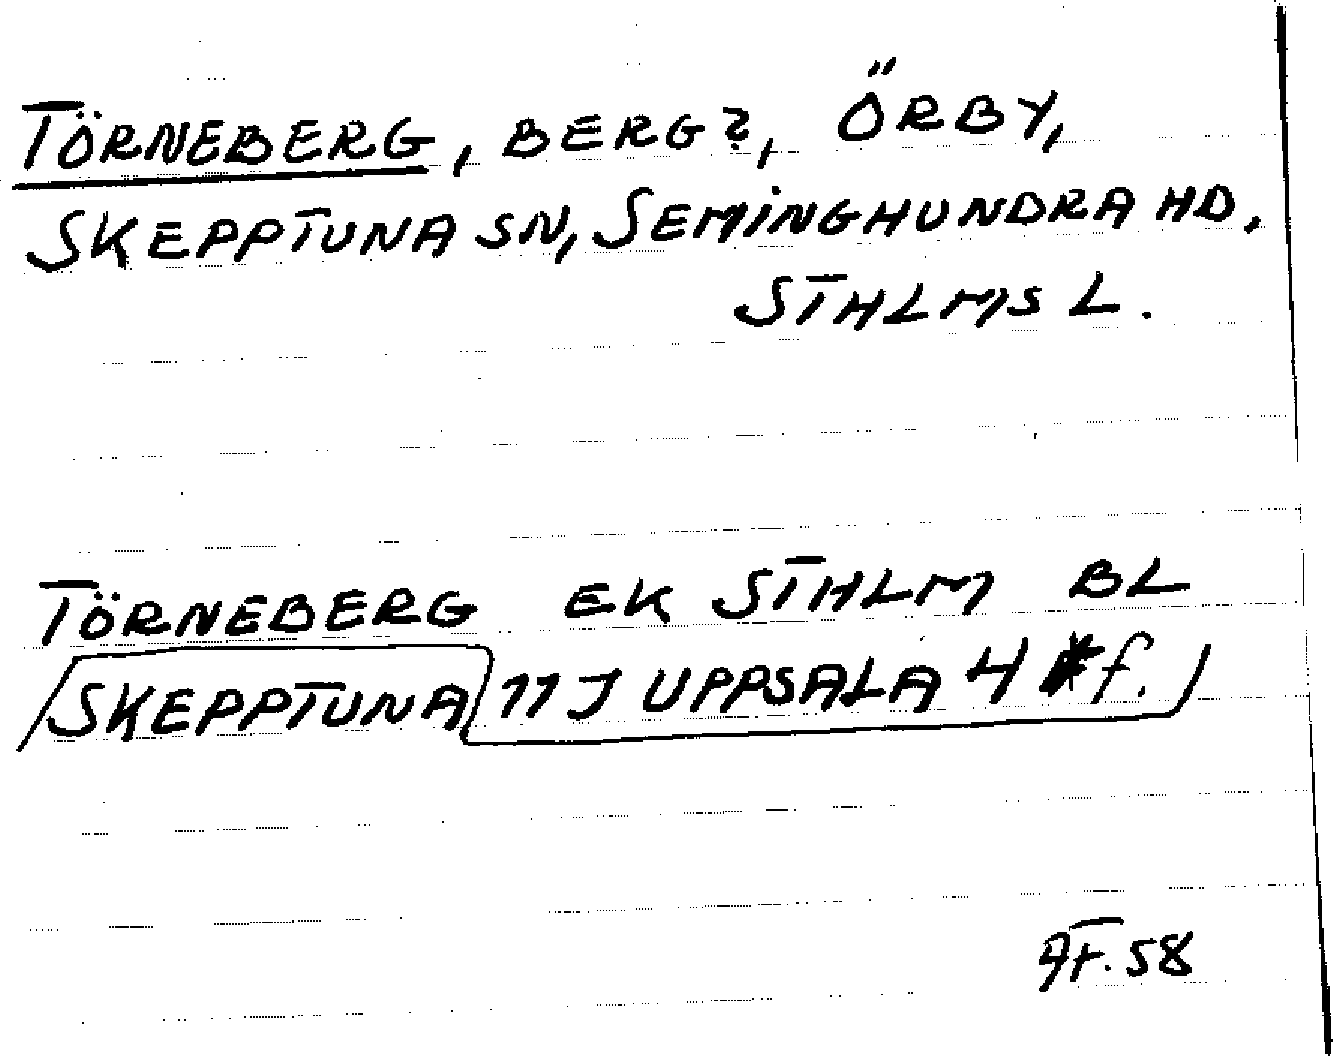 TÖRNEBERG, BERG?, ÖRBY,
SKEPPTUNA SN, SEMINGHUNDRA HD.
STHLMS L.
TÖRNEBERG EK STHLM BL
SKEPPTUNA 11 J UPPSALA 4 f.
AF. 58